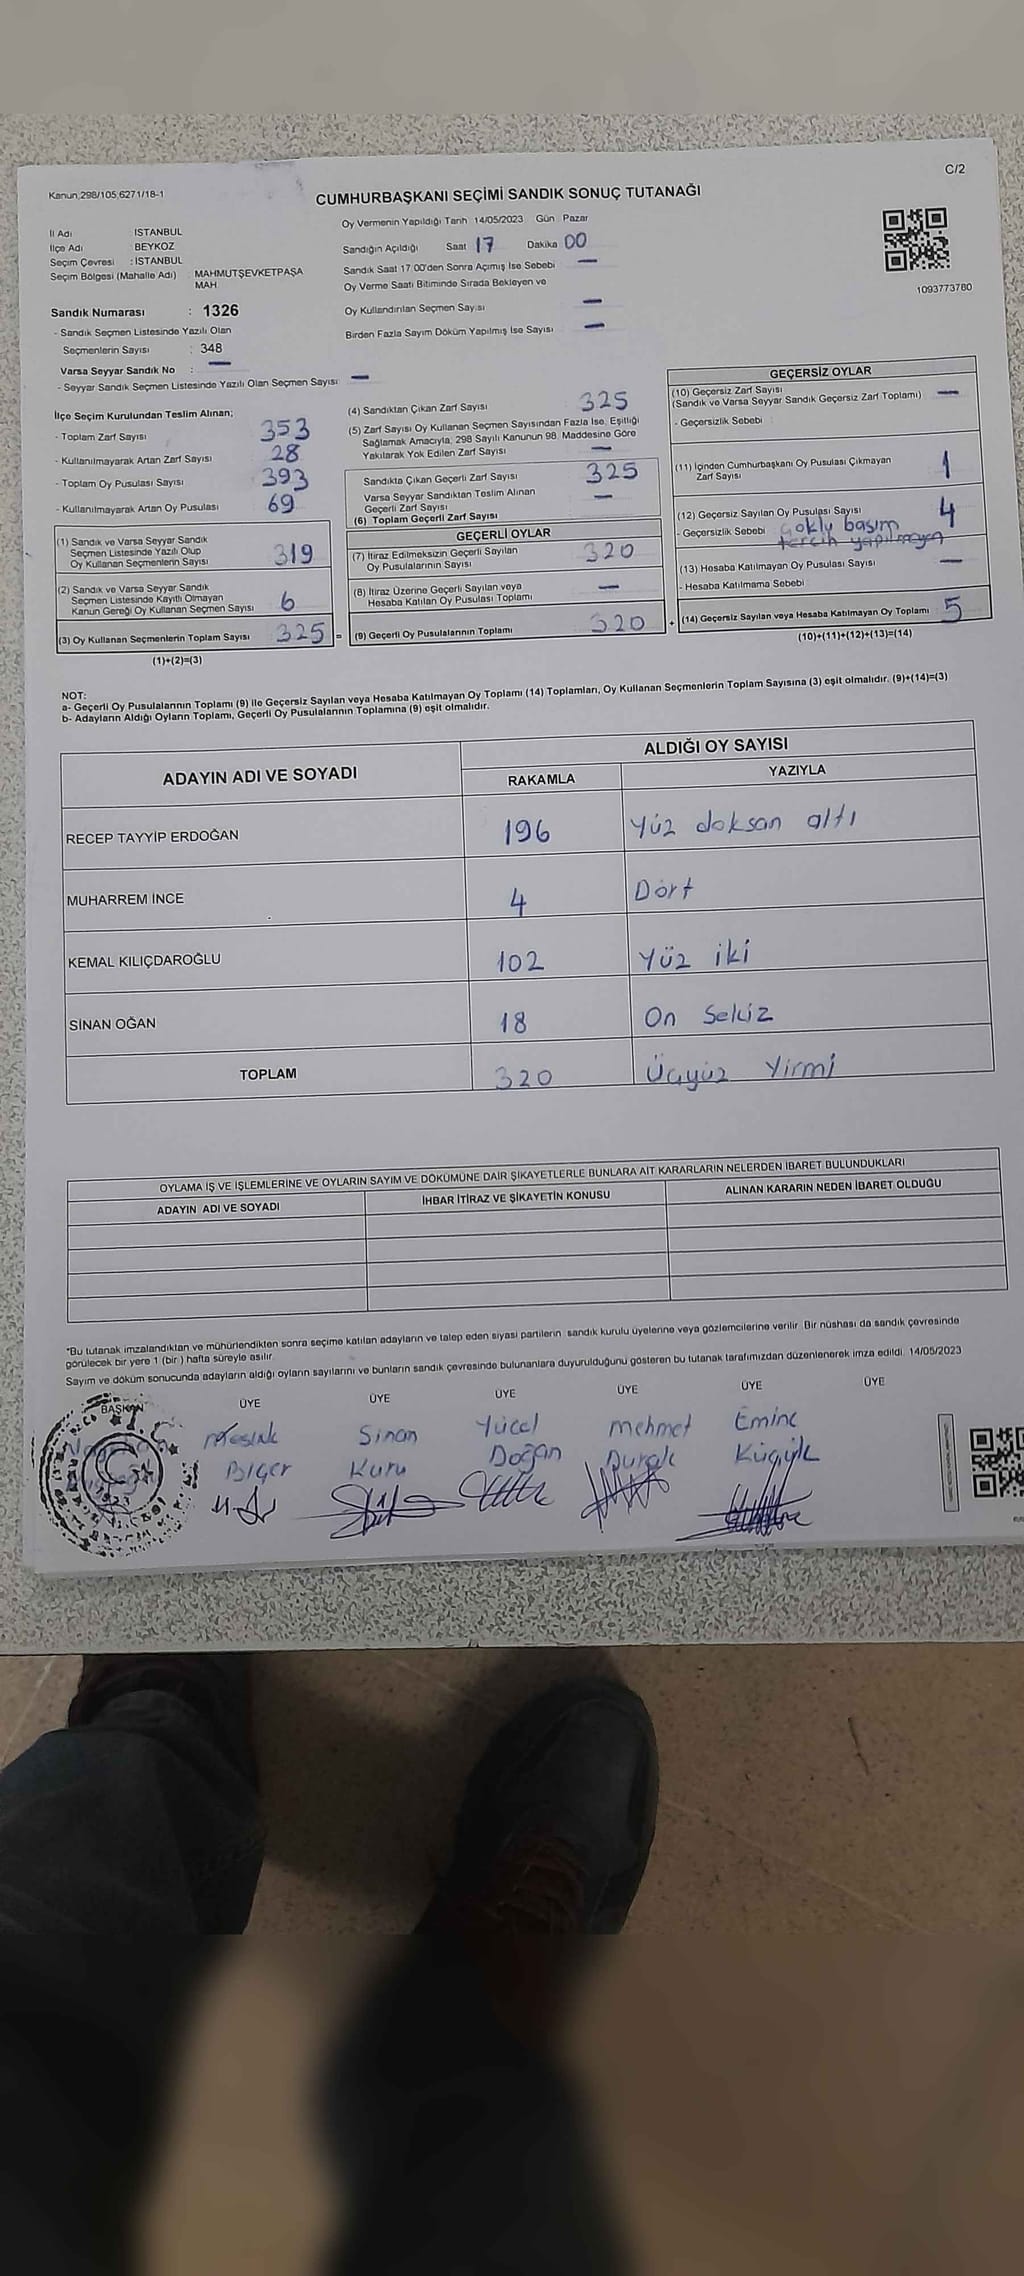 C/2
Kanun,298/105,6271/18-1
CUMHURBAŞKANI SEÇİMİ SANDIK SONUÇ TUTANAĞI
İl Adı : İSTANBUL
İlçe Adı : BEYKOZ
Seçim Çevresi : İSTANBUL
Seçim Bölgesi (Mahalle Adı) : MAHMUTŞEVKETPAŞA
MAH
Sandık Numarası : 1326
- Sandık Seçmen Listesinde Yazılı Olan
Seçmenlerin Sayısı : 348
Varsa Seyyar Sandık No : —
- Seyyar Sandık Seçmen Listesinde Yazılı Olan Seçmen Sayısı —
Oy Vermenin Yapıldığı Tarih 14/05/2023 Gün Pazar
Sandığın Açıldığı Saat 17 Dakika 00
Sandık Saat 17:00'den Sonra Açımış İse Sebebi —
Oy Verme Saati Bitiminde Sırada Bekleyen ve
Oy Kullandırılan Seçmen Sayısı —
Birden Fazla Sayım Döküm Yapılmış İse Sayısı —
1093773780
İlçe Seçim Kurulundan Teslim Alınan;
- Toplam Zarf Sayısı 353
- Kullanılmayarak Artan Zarf Sayısı 28
- Toplam Oy Pusulası Sayısı 393
- Kullanılmayarak Artan Oy Pusulası 69
(1) Sandık ve Varsa Seyyar Sandık
Seçmen Listesinde Yazılı Olup
Oy Kullanan Seçmenlerin Sayısı 319
(2) Sandık ve Varsa Seyyar Sandık
Seçmen Listesinde Kayıtlı Olmayan
Kanun Gereği Oy Kullanan Seçmen Sayısı 6
(3) Oy Kullanan Seçmenlerin Toplam Sayısı 325 =
(1)+(2)=(3)
(4) Sandıktan Çıkan Zarf Sayısı 325
(5) Zarf Sayısı Oy Kullanan Seçmen Sayısından Fazla İse, Eşitliği
Sağlamak Amacıyla, 298 Sayılı Kanunun 98. Maddesine Göre
Yakılarak Yok Edilen Zarf Sayısı —
Sandıkta Çıkan Geçerli Zarf Sayısı 325
Varsa Seyyar Sandıktan Teslim Alınan
Geçerli Zarf Sayısı —
(6) Toplam Geçerli Zarf Sayısı
GEÇERLİ OYLAR
(7) İtiraz Edilmeksizin Geçerli Sayılan
Oy Pusulalarının Sayısı 320
(8) İtiraz Üzerine Geçerli Sayılan veya
Hesaba Katılan Oy Pusulası Toplamı —
(9) Geçerli Oy Pusulalarının Toplamı 320 +
GEÇERSİZ OYLAR
(10) Geçersiz Zarf Sayısı
(Sandık ve Varsa Seyyar Sandık Geçersiz Zarf Toplamı) —
- Geçersizlik Sebebi :
(11) İçinden Cumhurbaşkanı Oy Pusulası Çıkmayan
Zarf Sayısı 1
(12) Geçersiz Sayılan Oy Pusulası Sayısı 4
- Geçersizlik Sebebi Çoklu basım
tercih yapılmayan
(13) Hesaba Katılmayan Oy Pusulası Sayısı —
- Hesaba Katılmama Sebebi :
(14) Geçersiz Sayılan veya Hesaba Katılmayan Oy Toplamı 5
(10)+(11)+(12)+(13)=(14)
NOT:
a- Geçerli Oy Pusulalarının Toplamı (9) ile Geçersiz Sayılan veya Hesaba Katılmayan Oy Toplamı (14) Toplamları, Oy Kullanan Seçmenlerin Toplam Sayısına (3) eşit olmalıdır. (9)+(14)=(3)
b- Adayların Aldığı Oyların Toplamı, Geçerli Oy Pusulalarının Toplamına (9) eşit olmalıdır.
ADAYIN ADI VE SOYADI ALDIĞI OY SAYISI
RAKAMLA YAZIYLA
RECEP TAYYİP ERDOĞAN 196 Yüz doksan altı
MUHARREM İNCE 4 Dört
KEMAL KILIÇDAROĞLU 102 Yüz iki
SİNAN OĞAN 18 On Sekiz
TOPLAM 320 Üçyüz Yirmi
OYLAMA İŞ VE İŞLEMLERİNE VE OYLARIN SAYIM VE DÖKÜMÜNE DAİR ŞİKAYETLERLE BUNLARA AİT KARARLARIN NELERDEN İBARET BULUNDUKLARI
ADAYIN ADI VE SOYADI İHBAR İTİRAZ VE ŞİKAYETİN KONUSU ALINAN KARARIN NEDEN İBARET OLDUĞU
*Bu tutanak imzalandıktan ve mühürlendikten sonra seçime katılan adayların ve talep eden siyasi partilerin sandık kurulu üyelerine veya gözlemcilerine verilir. Bir nüshası da sandık çevresinde
görülecek bir yere 1 (bir ) hafta süreyle asılır.
Sayım ve döküm sonucunda adayların aldığı oyların sayılarını ve bunların sandık çevresinde bulunanlara duyurulduğunu gösteren bu tutanak tarafımızdan düzenlenerek imza edildi. 14/05/2023
BAŞKAN ÜYE ÜYE ÜYE ÜYE ÜYE ÜYE
Sinan Yücel Mehmet Emine
Biçer Kuru Doğan Durak Küçük